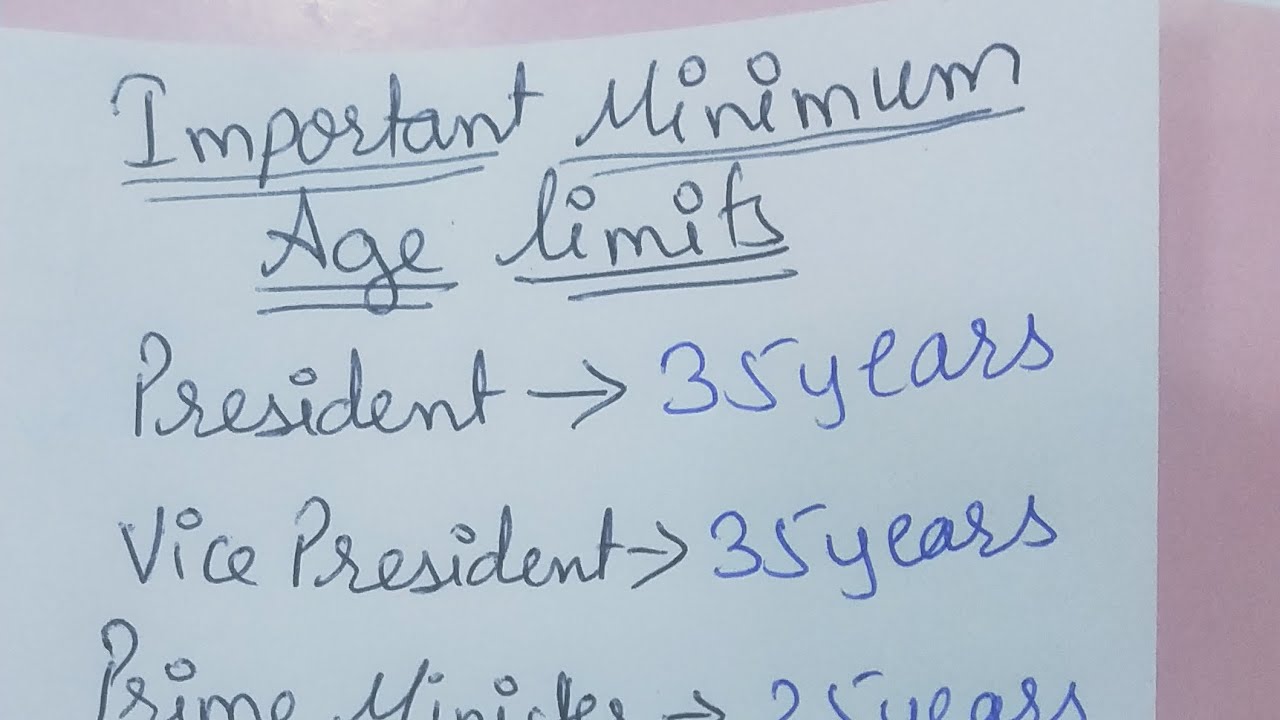 Important Minimum
Age limits
President → 35 years
Vice President → 35 years
Prime Minister → 25 years